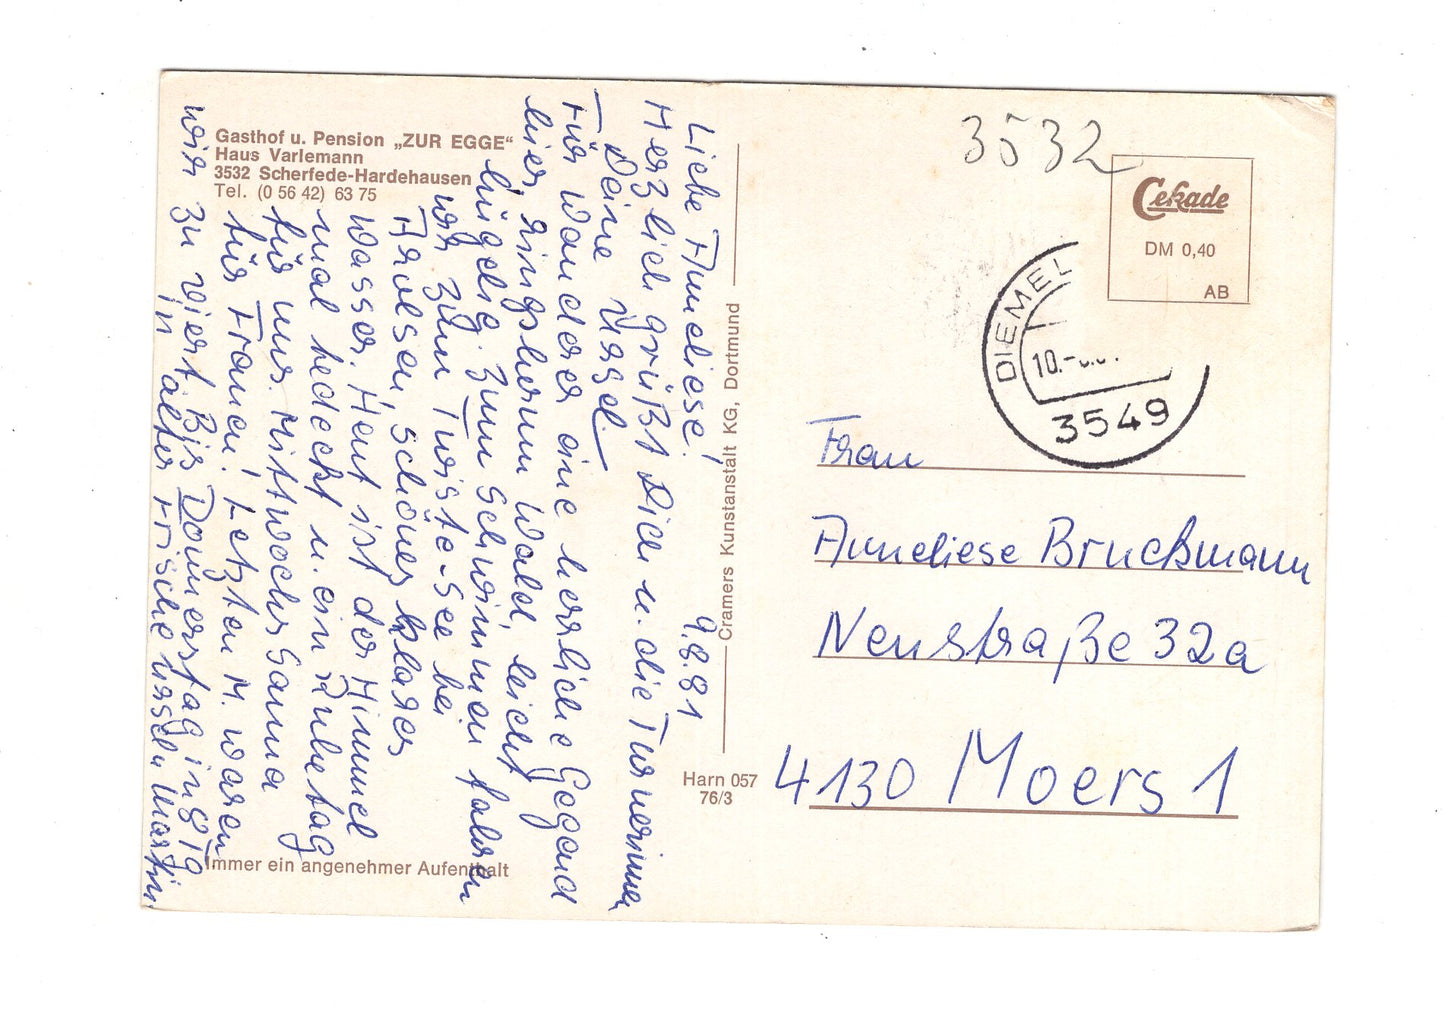 Gasthof u. Pension „ZUR EGGE“
Haus Varlemann
3532 Scherfede-Hardehausen
Tel. (0 56 42) 63 75
9.8.81
Liebe Anneliese!
Herzlich grüßt Dich u. die Turnerinnen
Deine Ursel.
Für Wanderer eine herrliche Gegend
hier, ringsherum Wald, leicht
hügelig. Zum Schwimmen fahren
wir zum Twiste-See bei
Arolsen, schönes klares
Wasser. Heut ist der Himmel
mal bedeckt u. ein Ruhetag
für uns. Mittwochs Sauna
für Frauen! Letzten M. waren
wir zu viert. Bis Donnerstag in 8 Tg
In alter Frische Ursel u. Martin
Immer ein angenehmer Aufenthalt
Cramers Kunstanstalt KG, Dortmund
Harn 057
76/3
3532
Cekade
DM 0,40
AB
DIEMEL
10.-
3549
Frau
Anneliese Bruckmann
Neustraße 32a
4130 Moers 1